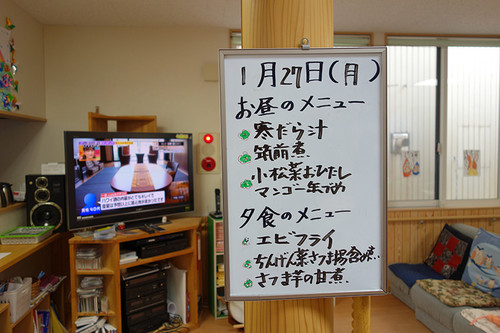 1月27日(月)
お昼のメニュー
寒だら汁
筑前煮
小松菜おひたし
マンゴー缶づめ
夕食のメニュー
エビフライ
ちんげん菜さつま揚含め煮
さつま芋の甘煮